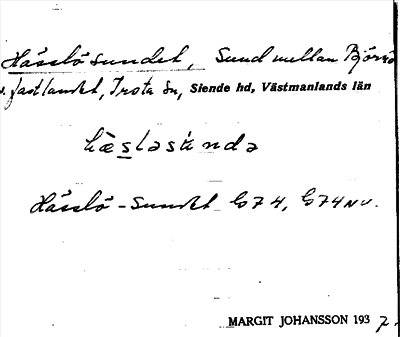 Hässlösundet, Sund mellan Björnö
v. fastlandet, Irsta sn, Siende hd, Västmanlands län
hæsləsúndə
Hässlö-Sundet G74, G74NV.
MARGIT JOHANSSON 1937.